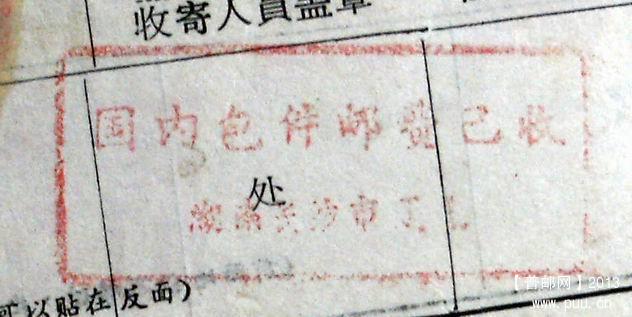 收寄人員盖章
国内包件邮费已收
处
湖南长沙市
可以贴在反面）
【首邮网】2013
www.puu.cn